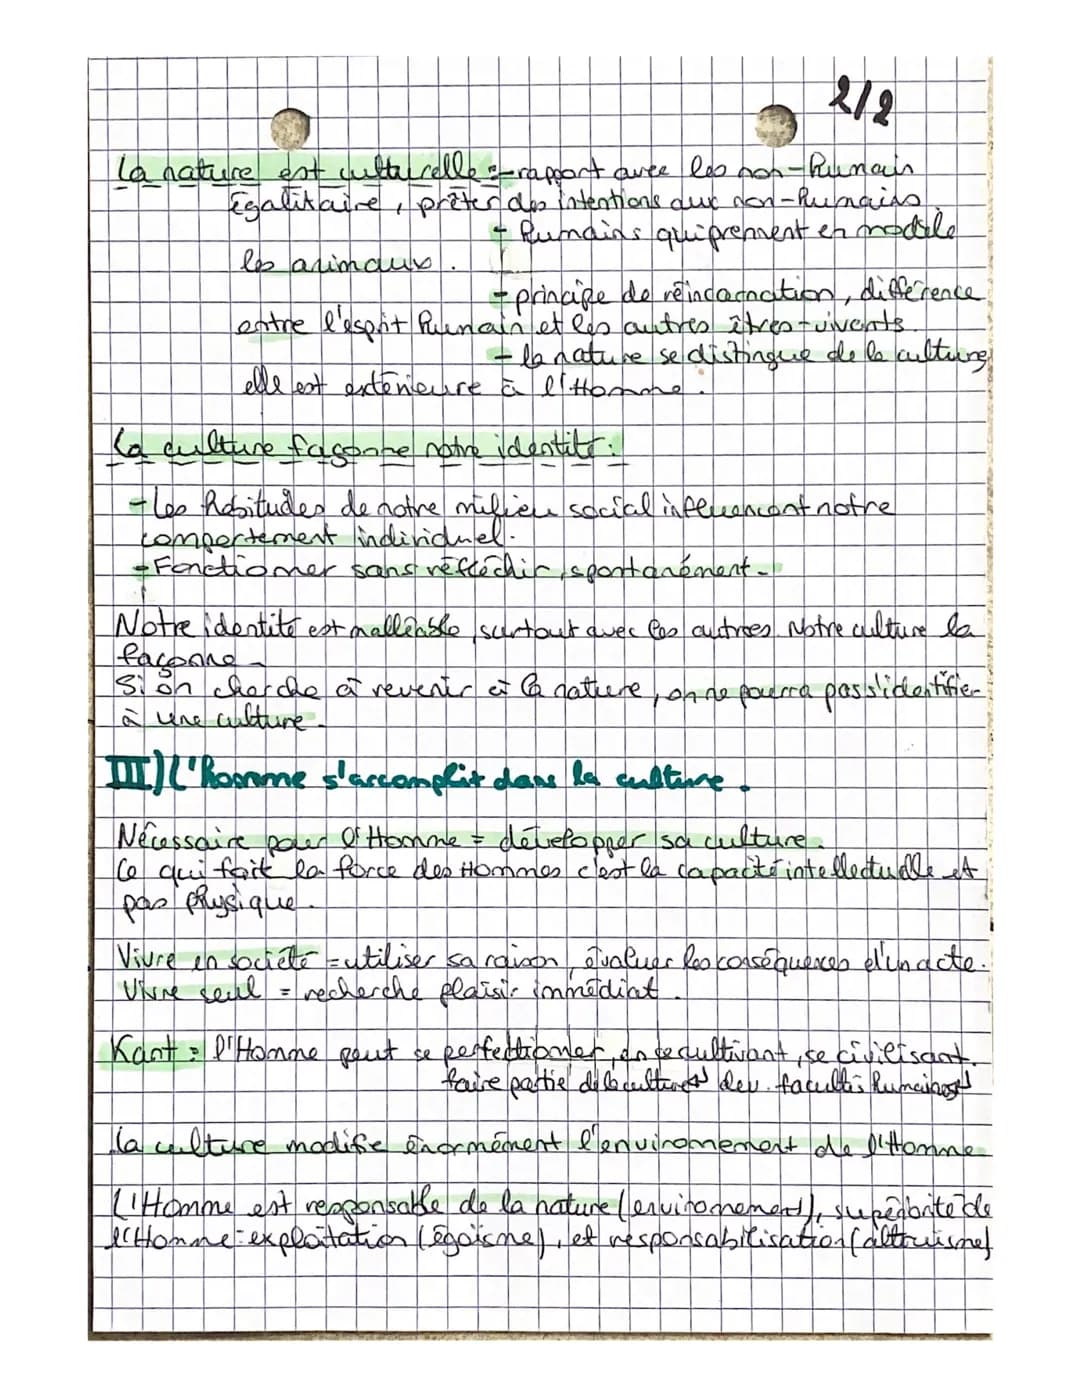 2/2
La nature est culturelle : - rapport avec les non-humain
égalitaire, prêter des intentions aux non-humains.
- humains qui prennent en modèle
les animaux.
- principe de réincarnation, différence
entre l'esprit humain et les autres êtres-vivants.
- la nature se distingue de la culture,
elle est extérieure à l'Homme.
La culture façonne notre identité :
- Les habitudes de notre milieu social influencent notre
comportement individuel.
- Fonctionner sans réfléchir, spontanément.
Notre identité est malléable, surtout avec les autres. Notre culture la
façonne.
Si on cherche à revenir à la nature, on ne pourra pas s'identifier
à une culture.
III) L'homme s'accomplit dans la culture.
Nécessaire pour l'Homme = développer sa culture.
Ce qui fait la force des Hommes c'est la capacité intellectuelle et
pas physique.
Vivre en société = utiliser sa raison, évaluer les conséquences d'un acte.
Vivre seul = recherche plaisir immédiat.
Kant : l'Homme peut se perfectionner, en se cultivant, se civilisant.
faire partie de la culture dev. facultés humaines
La culture modifie énormément l'environnement de l'Homme
L'Homme est responsable de la nature (environnement), supériorité de
l'Homme : exploitation (égoïsme), et responsabilisation (altruisme)